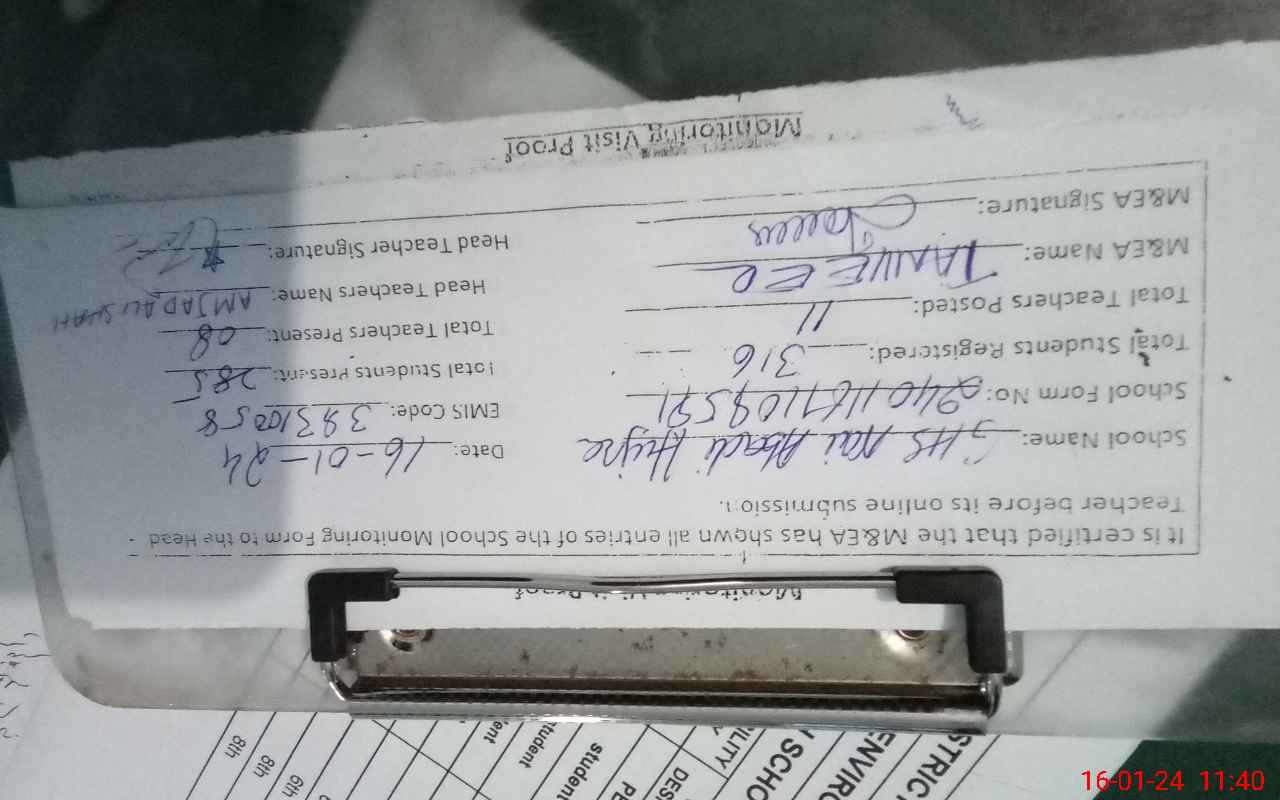 Monitoring Visit Proof
It is certified that the M&EA has shown all entries of the School Monitoring Form to the Head
Teacher before its online submission.
School Name: GHS Nai Abadi Date: 16-01-24
School Form No: EMIS Code: 38310058
Total Students Registered: 316 Total Students Present: 285
Total Teachers Posted: 11 Total Teachers Present: 08
M&EA Name: TANVEER Head Teachers Name: AMJAD ALI SHAH
M&EA Signature: Head Teacher Signature:
Monitoring Visit Proof
8th
8th
6th
student
student
16-01-24 11:40